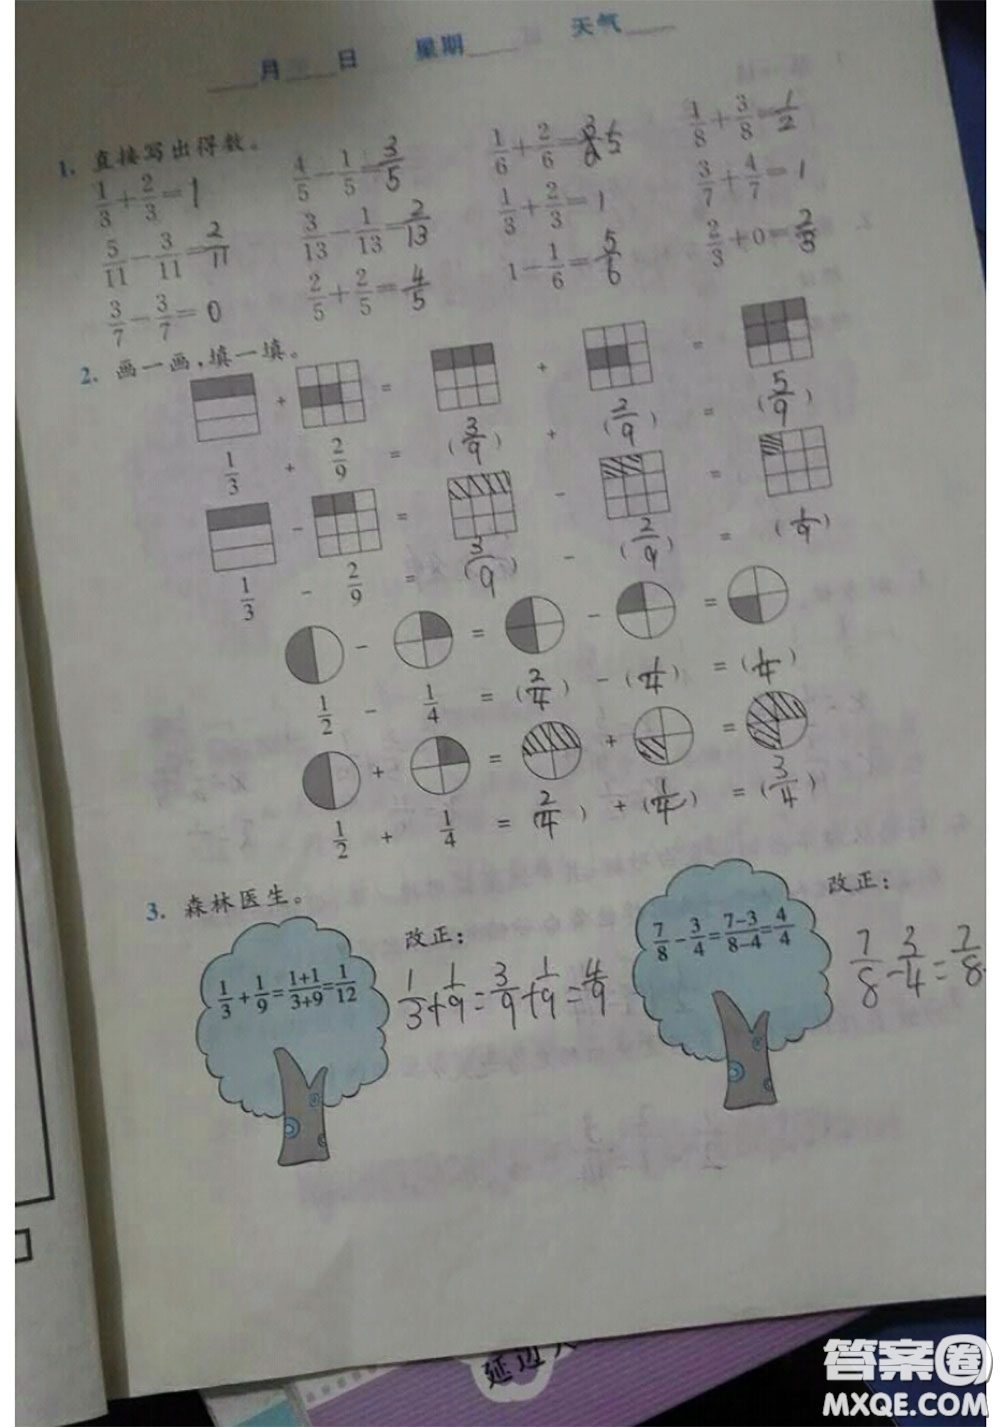 ___月___日 星期___ 天气___
1. 直接写出得数。
1/3+2/3=1 4/5-1/5=3/5 1/6+2/6= 1/8+3/8=1/2
5/11-3/11=2/11 3/13-1/13=2/13 1/3+2/3=1 3/7+4/7=1
3/7-3/7=0 2/5+2/5=4/5 1-1/6=5/6 2/3+0=2/3
2. 画一画,填一填。
+ = + =
1/3 + 2/9 = (3/9) + (2/9) = (5/9)
- = - =
1/3 - 2/9 = (3/9) - (2/9) = (1/9)
- = - =
1/2 - 1/4 = (2/4) - (1/4) = (1/4)
+ = + =
1/2 + 1/4 = 2/4 ) + (1/4) = (3/4)
3. 森林医生。
1/3+1/9=1+1/3+9=1/12
改正:
1/3+1/9=3/9+1/9=4/9
7/8-3/4=7-3/8-4=4/4
改正:
7/8-3/4=7/8
延边
答案圈
MXQE.COM